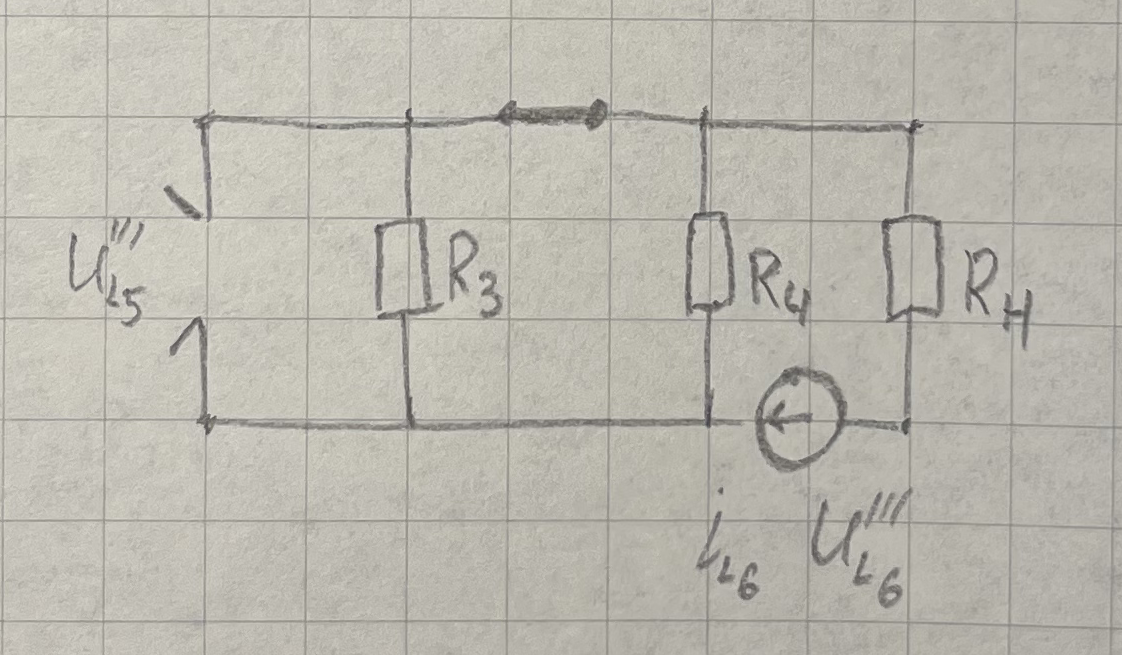 U'''L5
R3
R4
RH
iL6
U'''L6